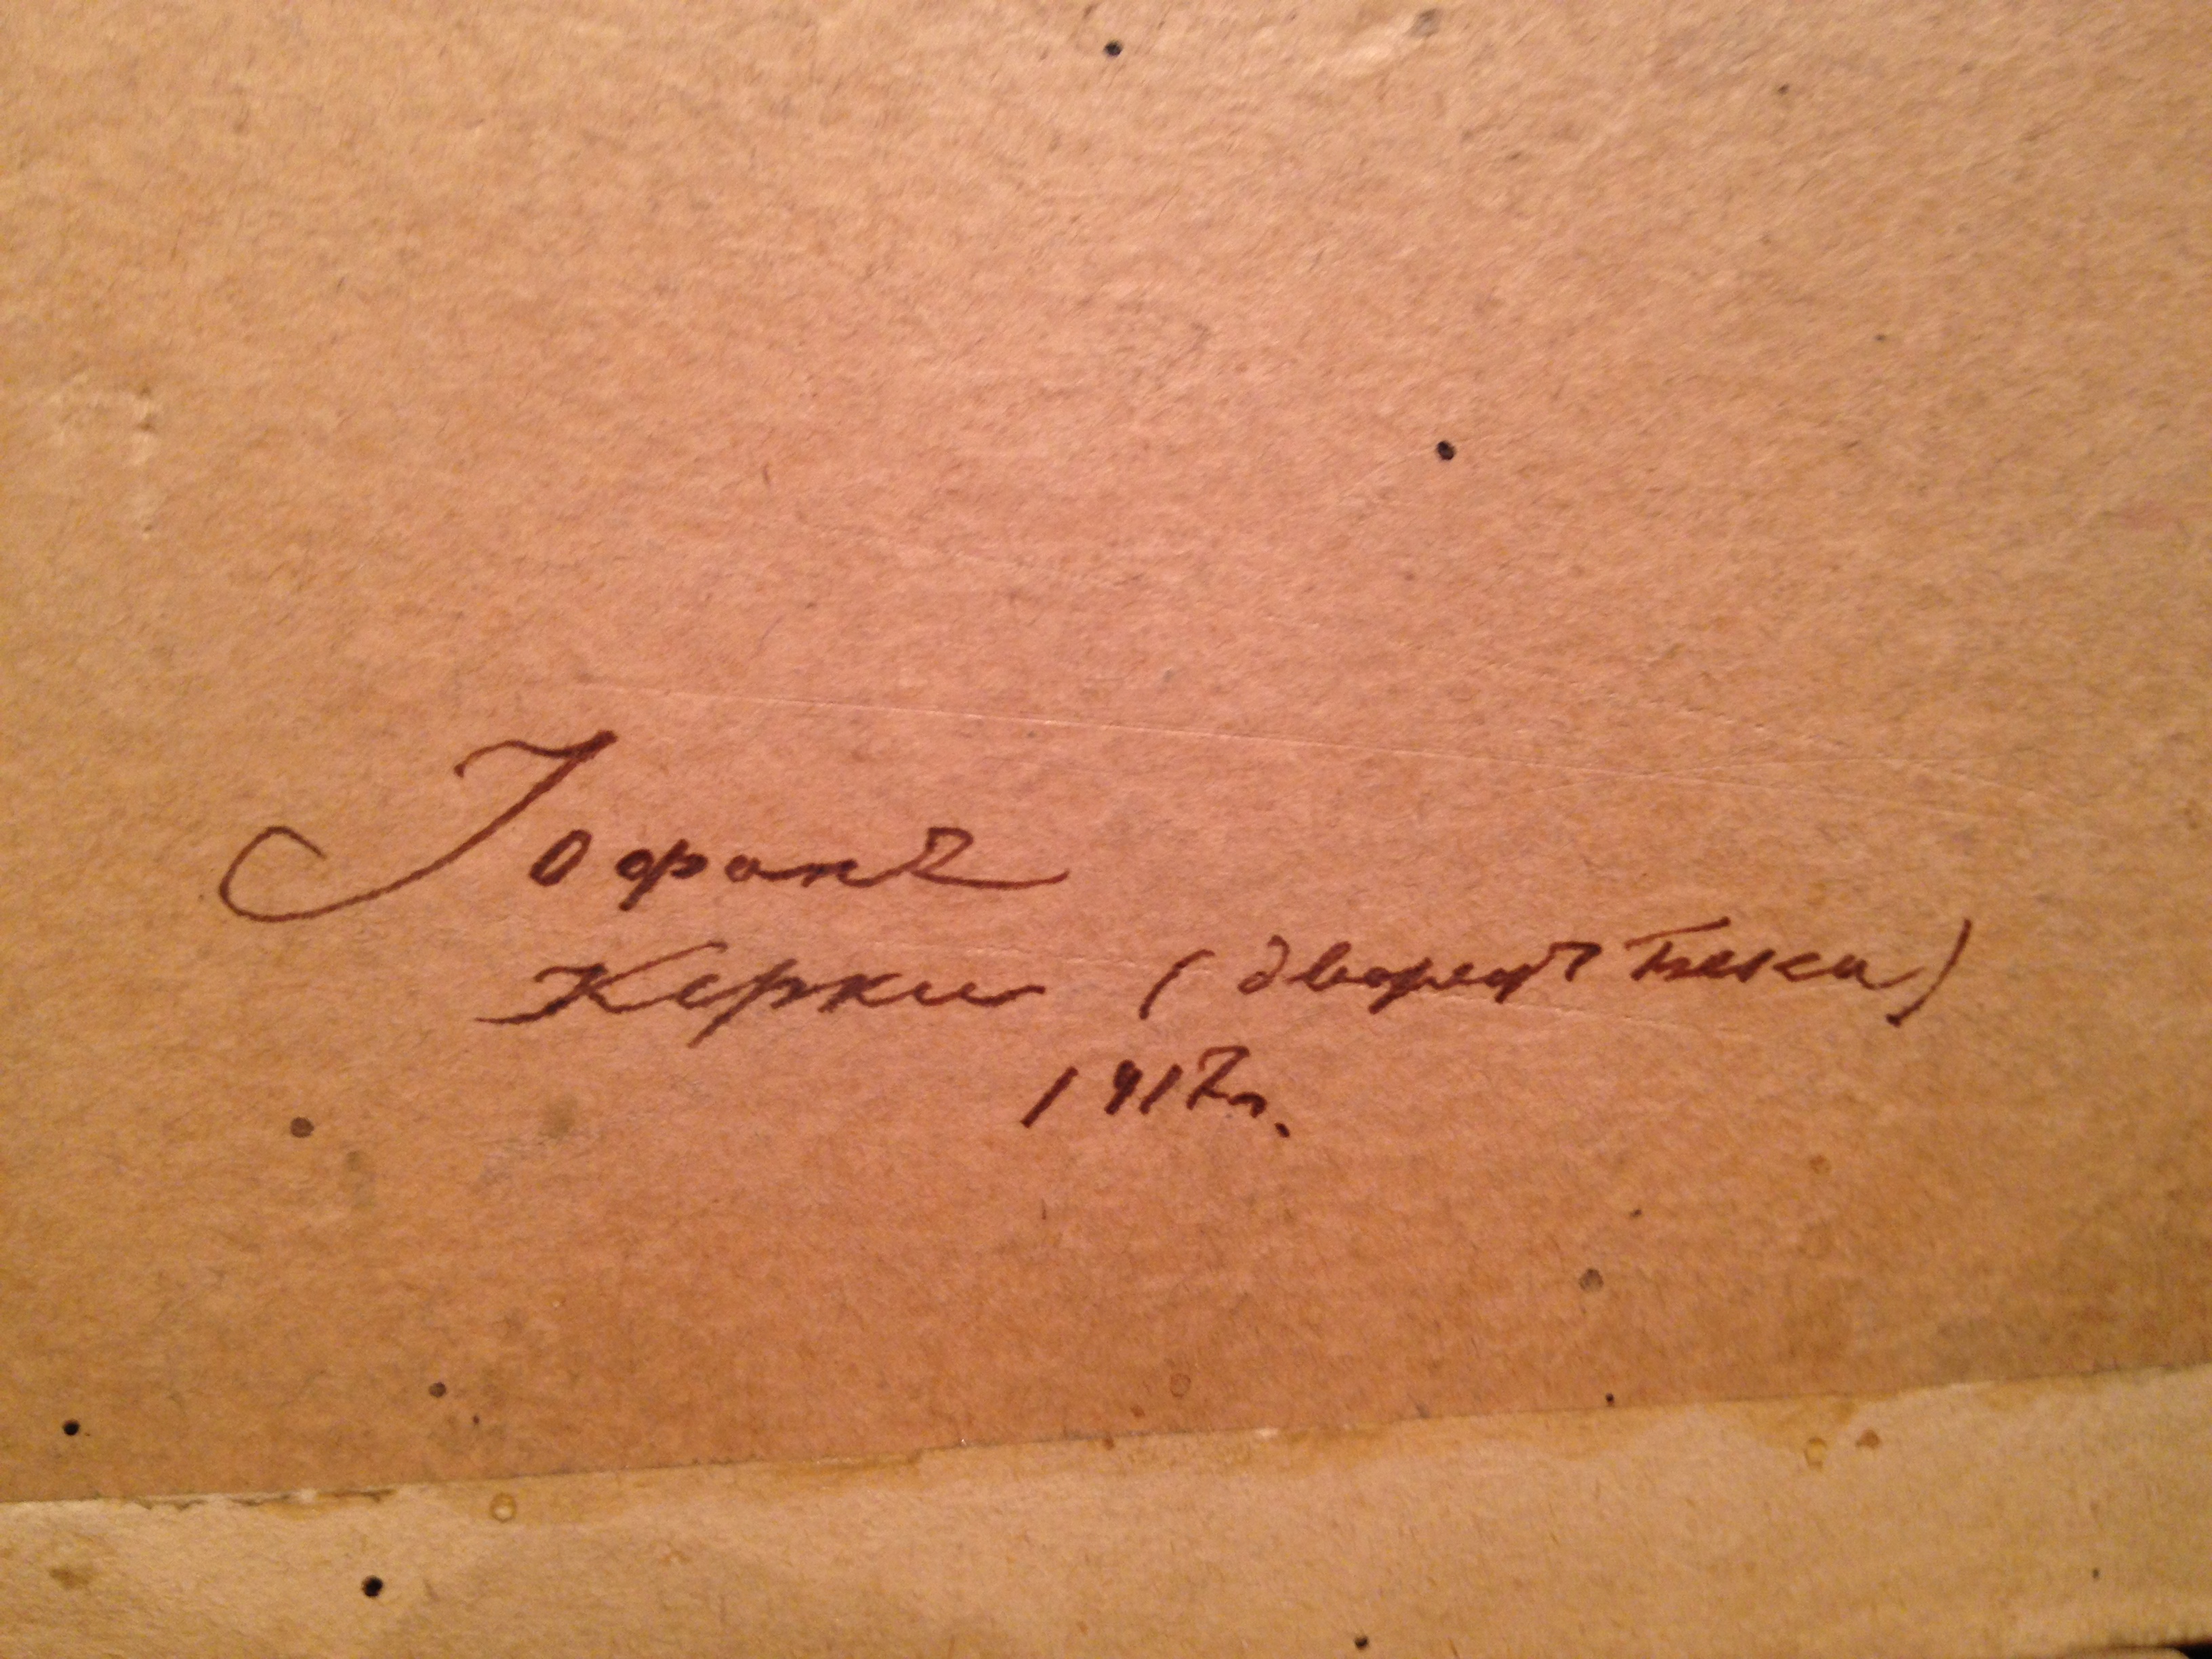 Іофанъ
Керки (дворецъ Бека)
1917г.